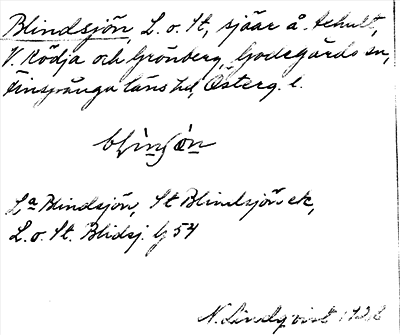 Blindsjön, L. o. St, sjöar å Achult,
V. Rödja och Grönberg, Godegårds sn,
Finspånga läns hd, Österg. l.
blinsön
La Blindsjön, St Blindsjön ek,
L. o. St. Blidsj. lj 54
N. Lindqvist 1928